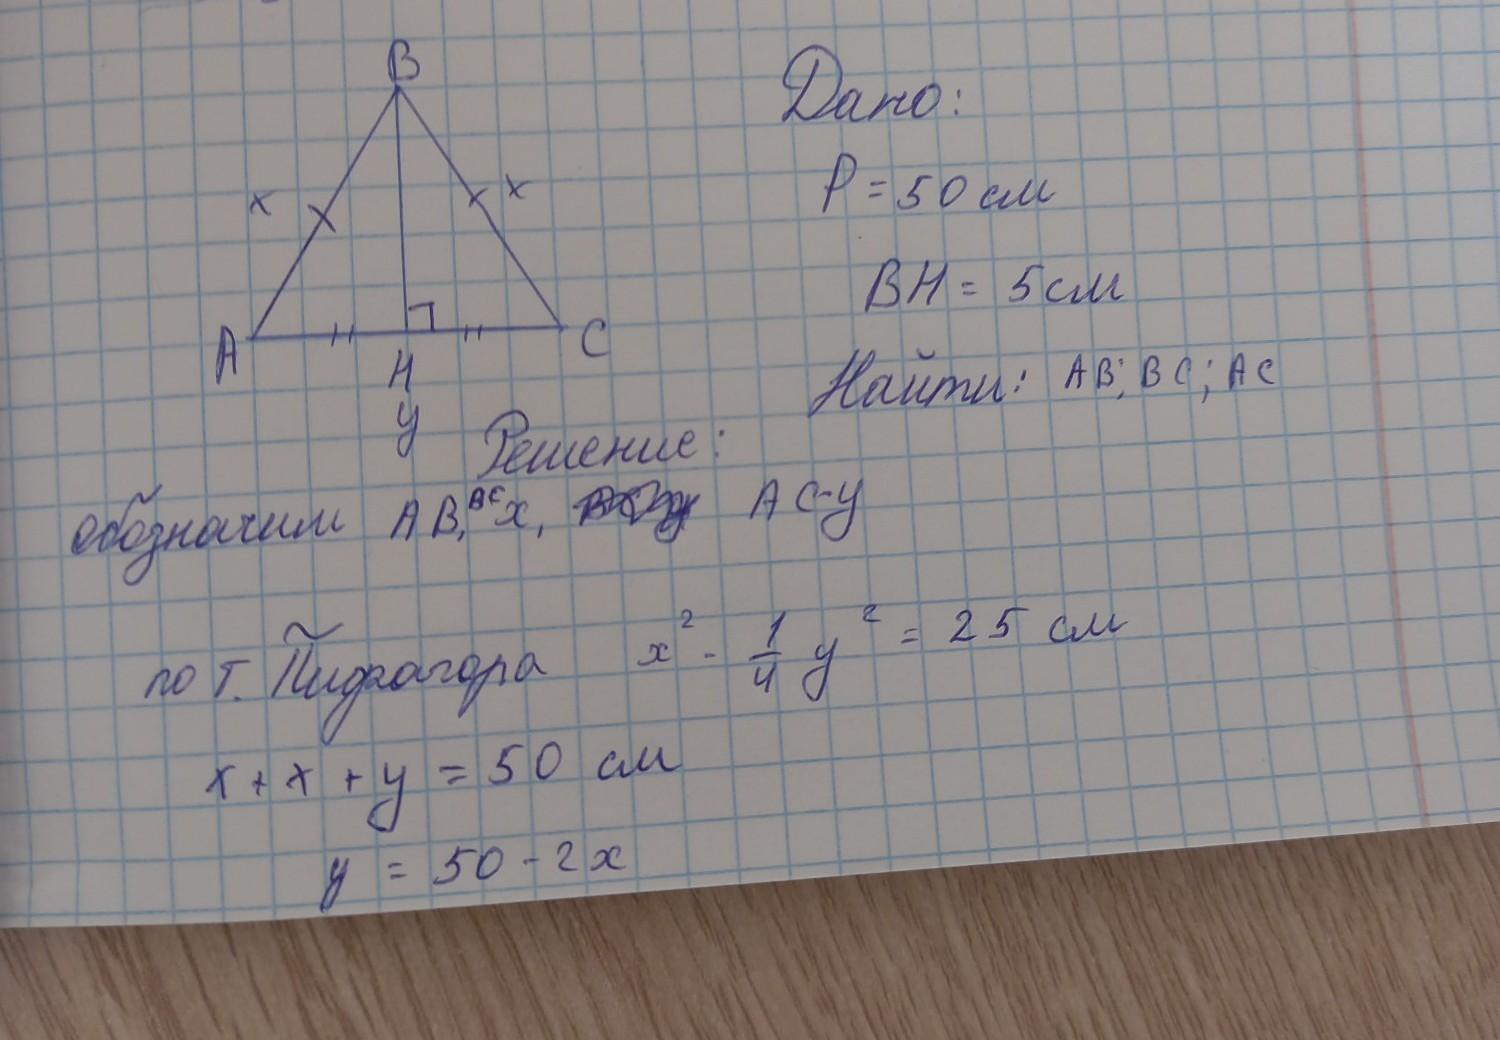 B
Дано:
x x
P = 50 см
BH = 5 см
A H C
Найти: AB; BC; AC
y
Решение:
обозначим AB, BC x, AC-y
по т. Пифагора x² - 1/4 y² = 25 см
x + x + y = 50 см
y = 50 - 2x